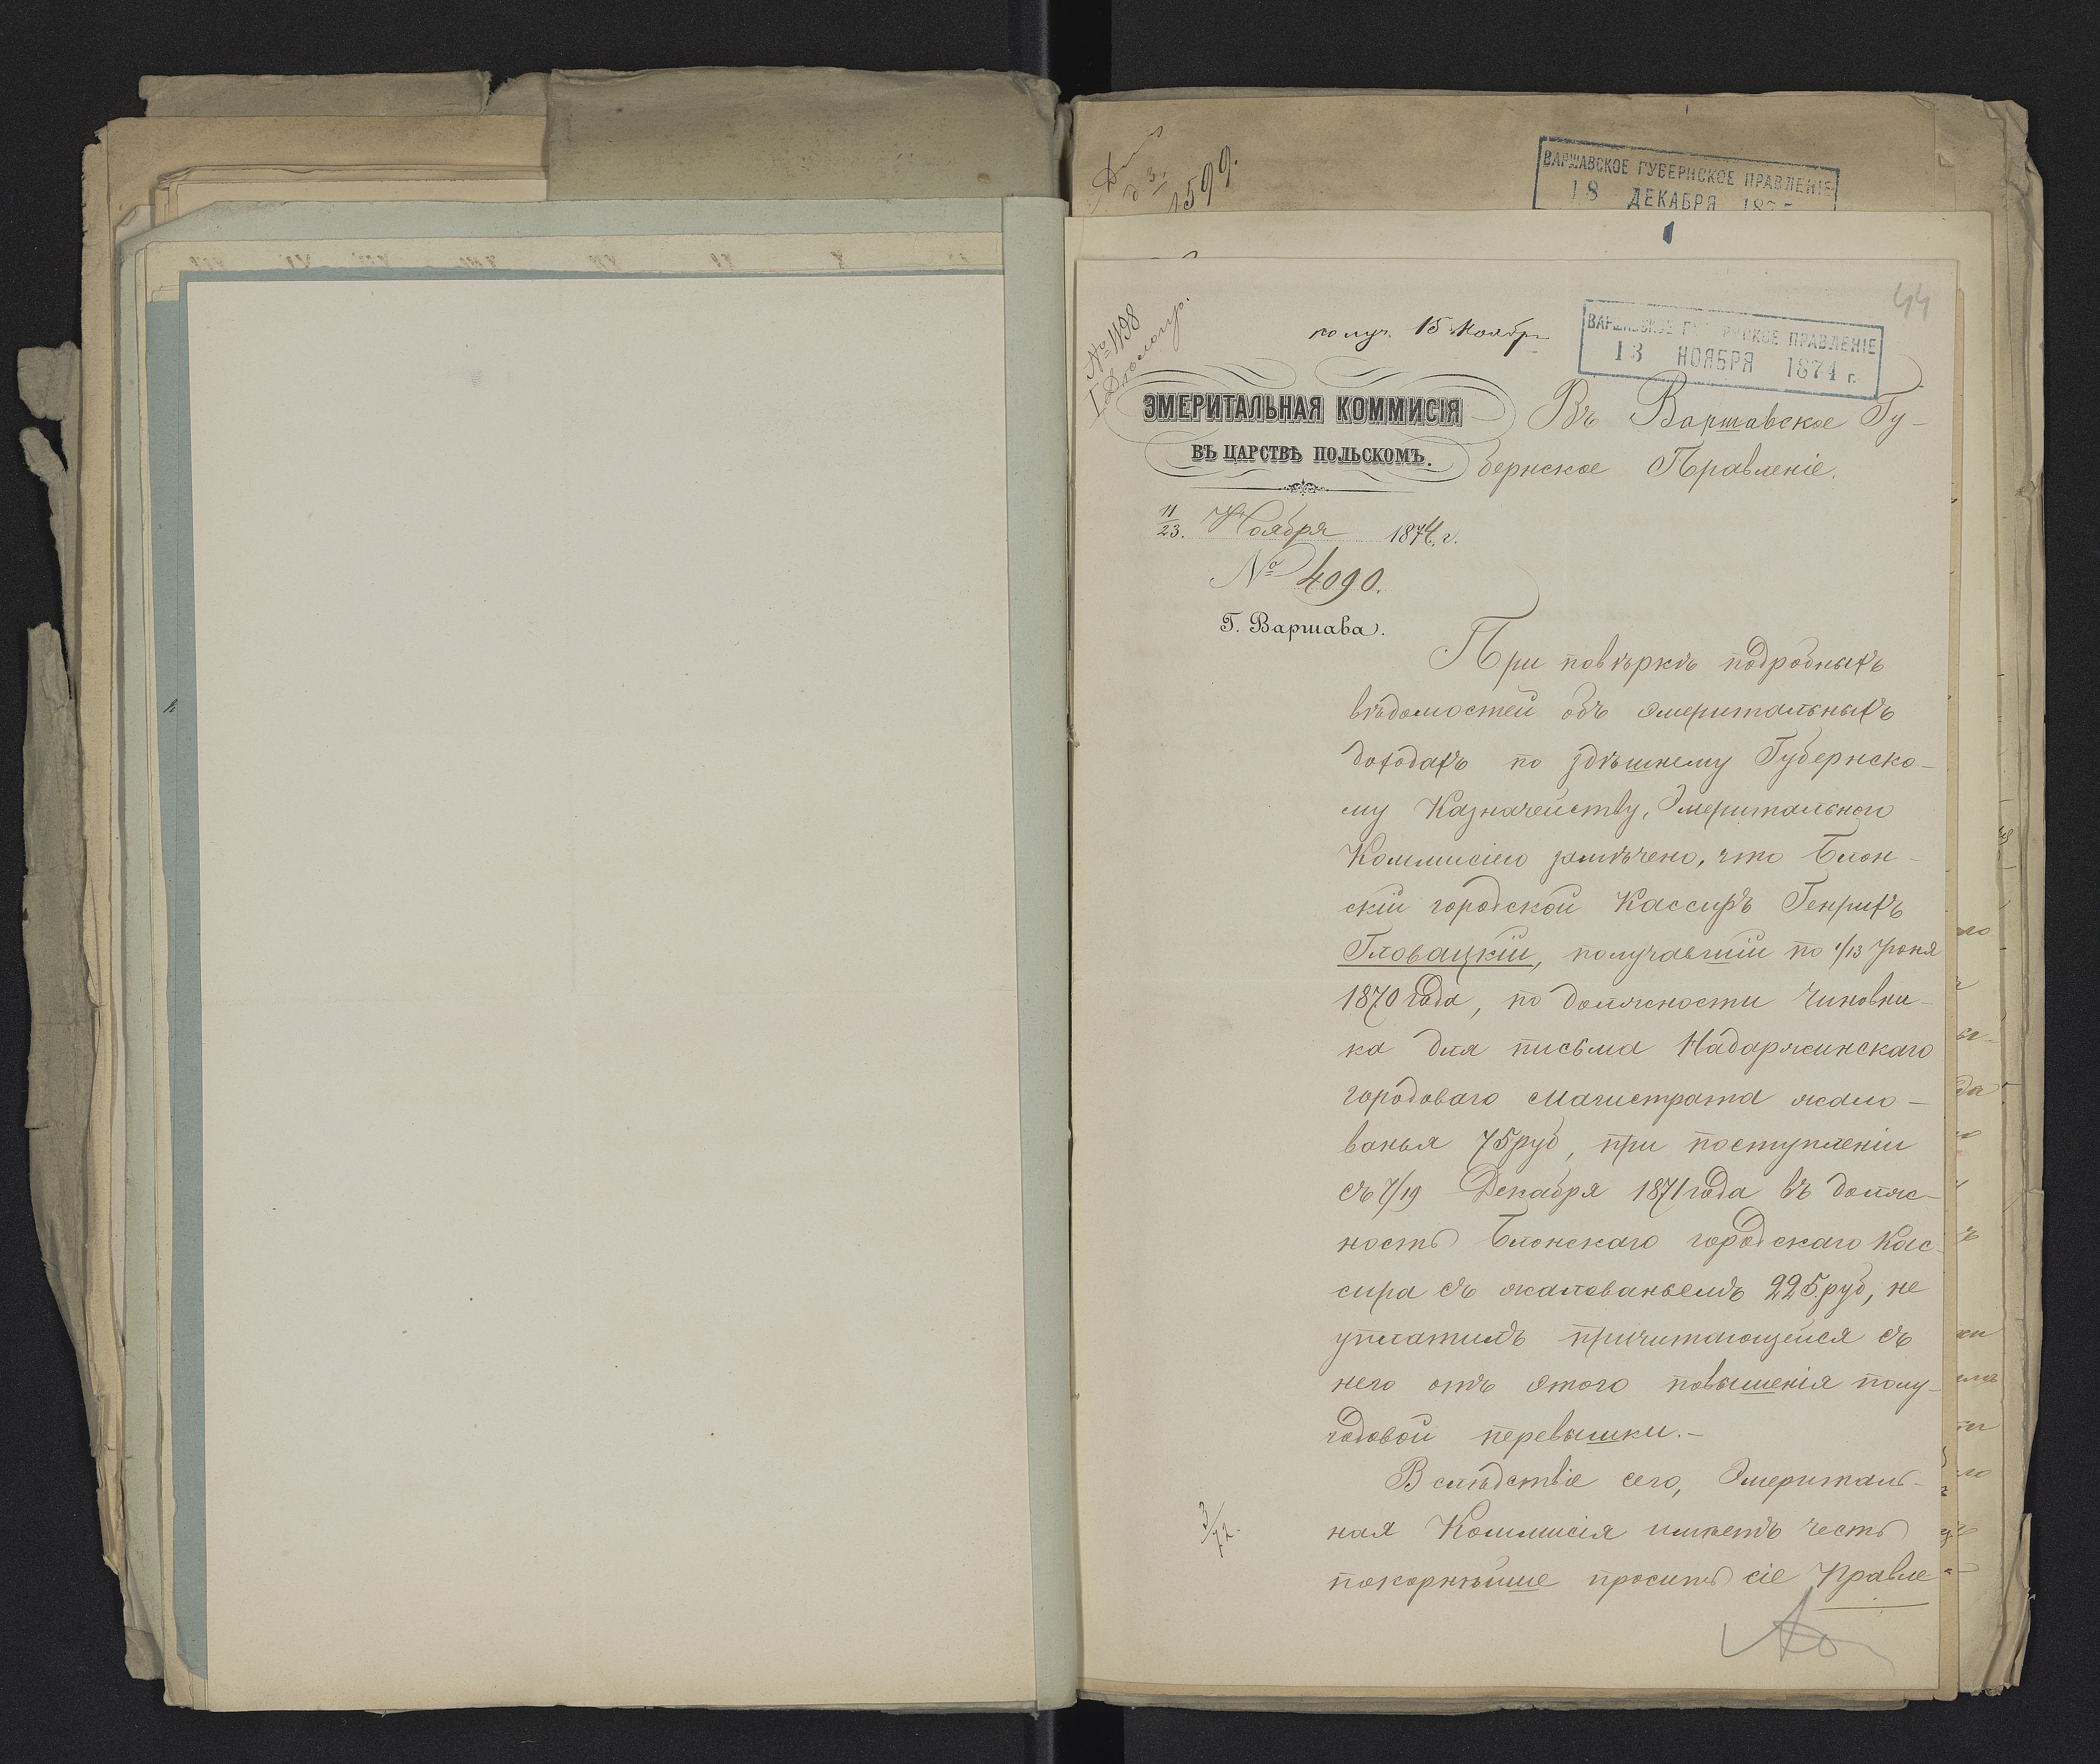 1599.
ВАРШАВСКОЕ ГУБЕРНСКОЕ ПРАВЛЕНІЕ
18 ДЕКАБРЯ
44
№ 1198
получ. 15 Ноябр
ВАРШАВСКОЕ ГУБЕРНСКОЕ ПРАВЛЕНІЕ
13 НОЯБРЯ 1874 г.
ЭМЕРИТАЛЬНАЯ КОММИСІЯ
ВЪ ЦАРСТВѢ ПОЛЬСКОМЪ.
11/23. Ноября 1874. г.
№ 4090.
Г. Варшава.
Въ Варшавское Гу-
бернское Правленіе.
При повѣркѣ подробныхъ
вѣдомостей объ эмеритальныхъ
доходахъ по здѣшнему Губернско-
му Казначейству, Эмеритальною
Коммисіею замѣчено, что Блон-
скій городской Кассиръ Генрихъ
Гловацкій, получавшій по 1/13 Іюня
1870 года, по должности чиновни-
ка для письма Надаржинскаго
городоваго Магистрата жало-
ванья 75 руб, при поступленіи
съ 7/19 Декабря 1871 года въ долж-
ность Блонскаго городскаго Кас-
сира съ жалованьемъ 225. руб, не
уплатилъ причитающейся съ
него отъ этого повышенія полу-
годовой перевышки.-
Вслѣдствіе сего, Эмериталь-
ная Коммисія имѣетъ честь
покорнѣйше просить сіе Правле
3/72.